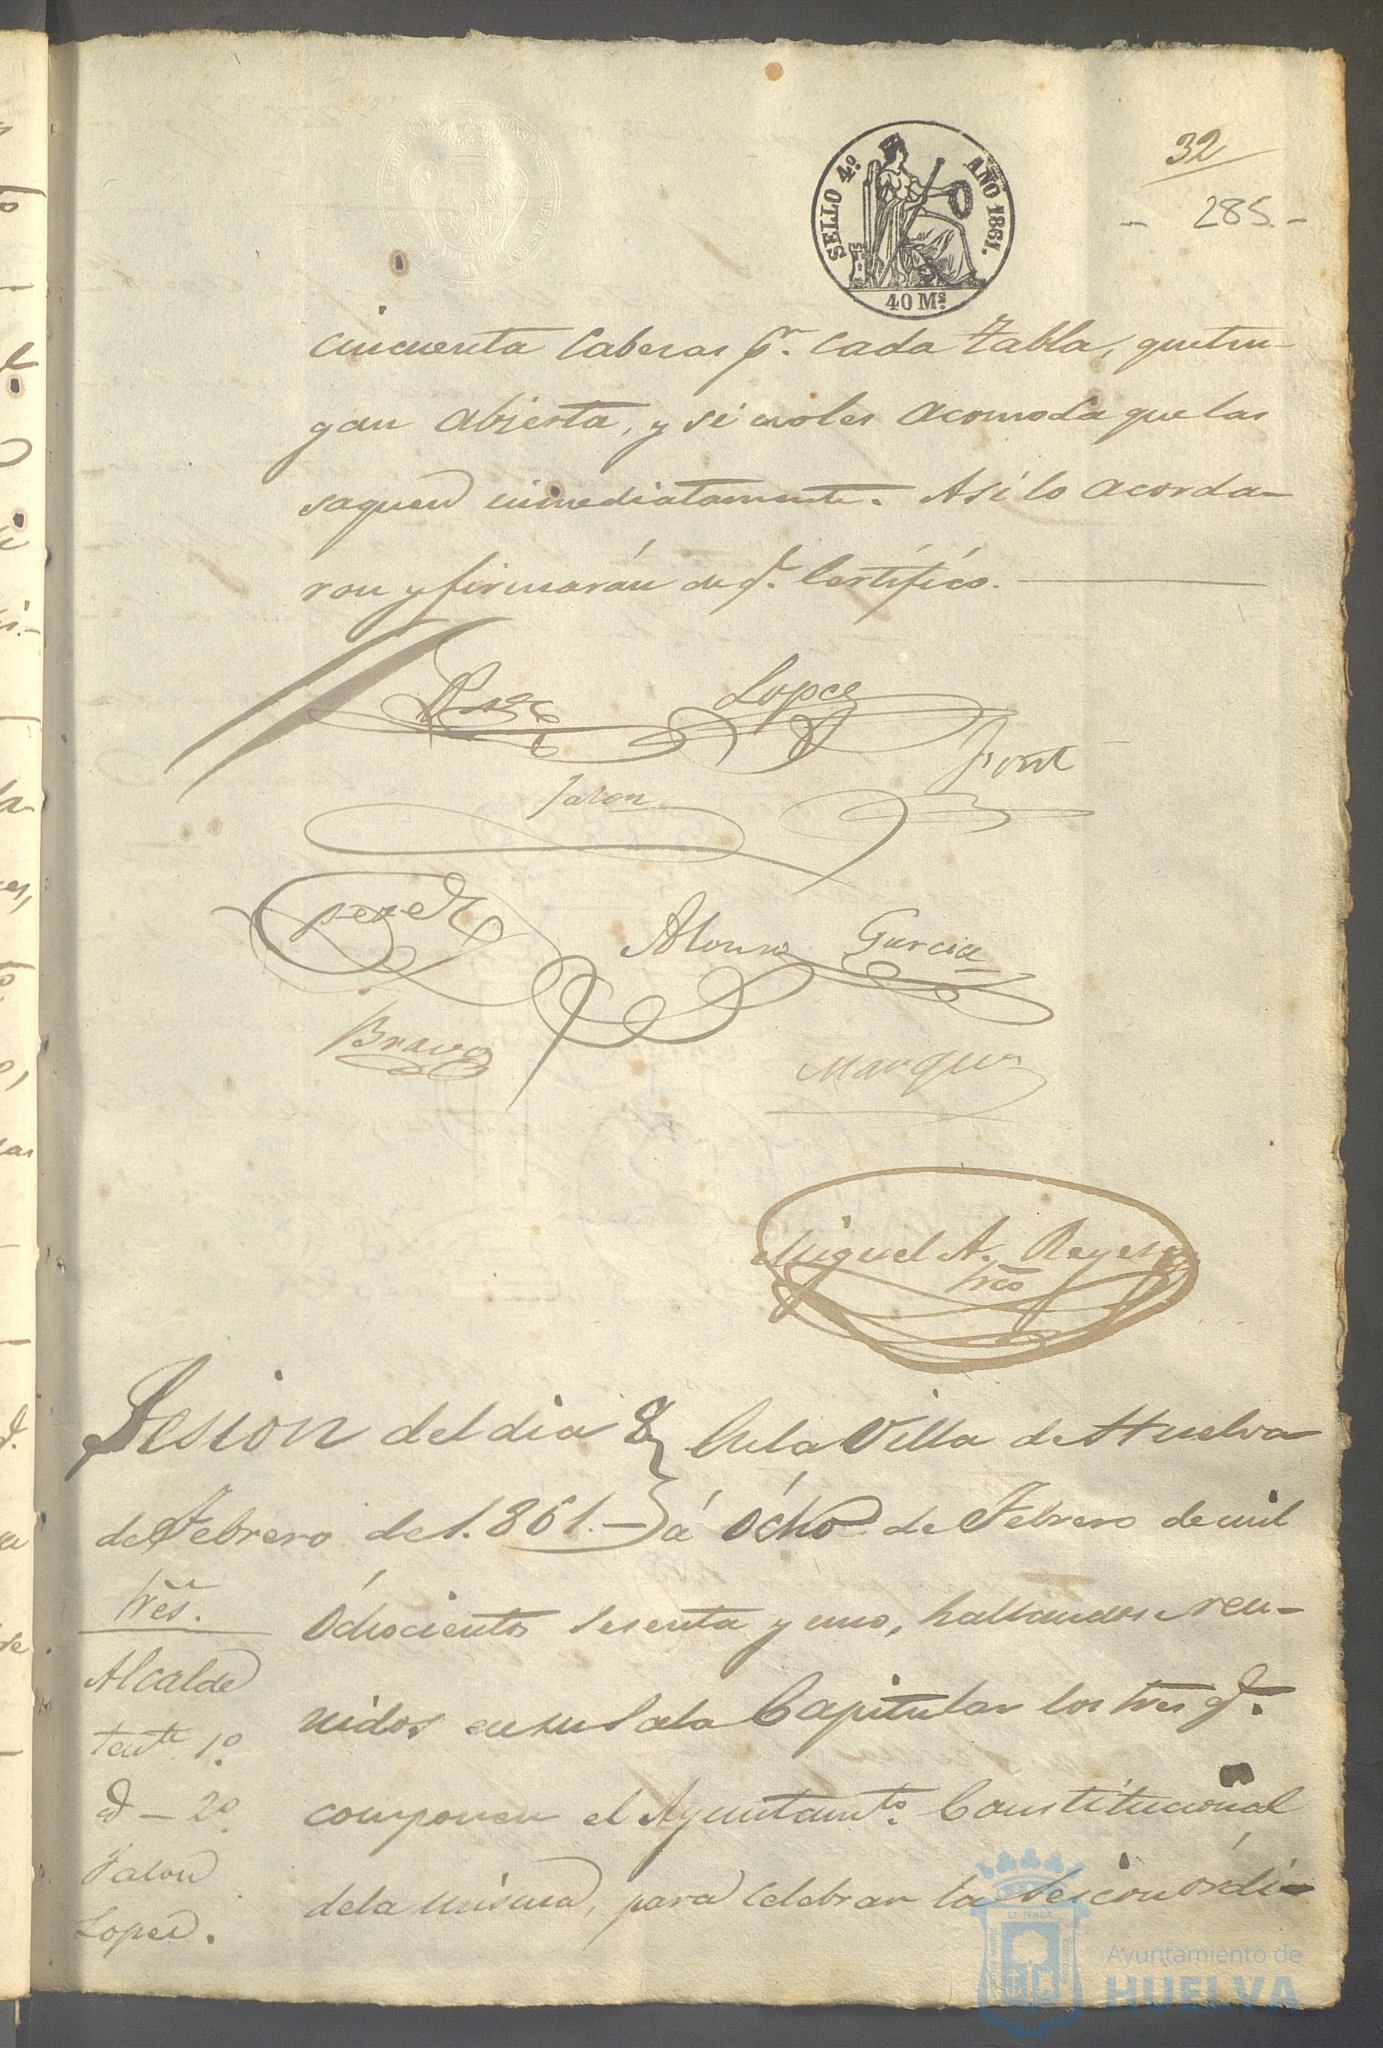 SELLO 4º AÑO 1861.
40 Ms.
32
- 285 -
cincuenta cabesas pr. cada tabla, que ten-
gan abierta, y si no les acomoda que las
saquen inmediatamente. Asi lo acorda-
ron y firmarán de q. certifico.
Lopez
Jalon
Font
Perez
Alonso Garcia
Bravo
Marquez
Miguel A. Reyes
Srio
Sesion del dia 8
de Febrero de 1.861.
En la Villa de Huelva
á ócho de Febrero de mil
óchocientos sesenta y uno, hallandose reu-
nidos en su Sala Capitular los Sres q.
componen el Ayuntamto. Constitucional
de la misma, para celebrar la sesion ordi-
Sres.
Alcalde
tente. 1º
id - 2º
Jalon
Lopez.
Ayuntamiento de
HUELVA